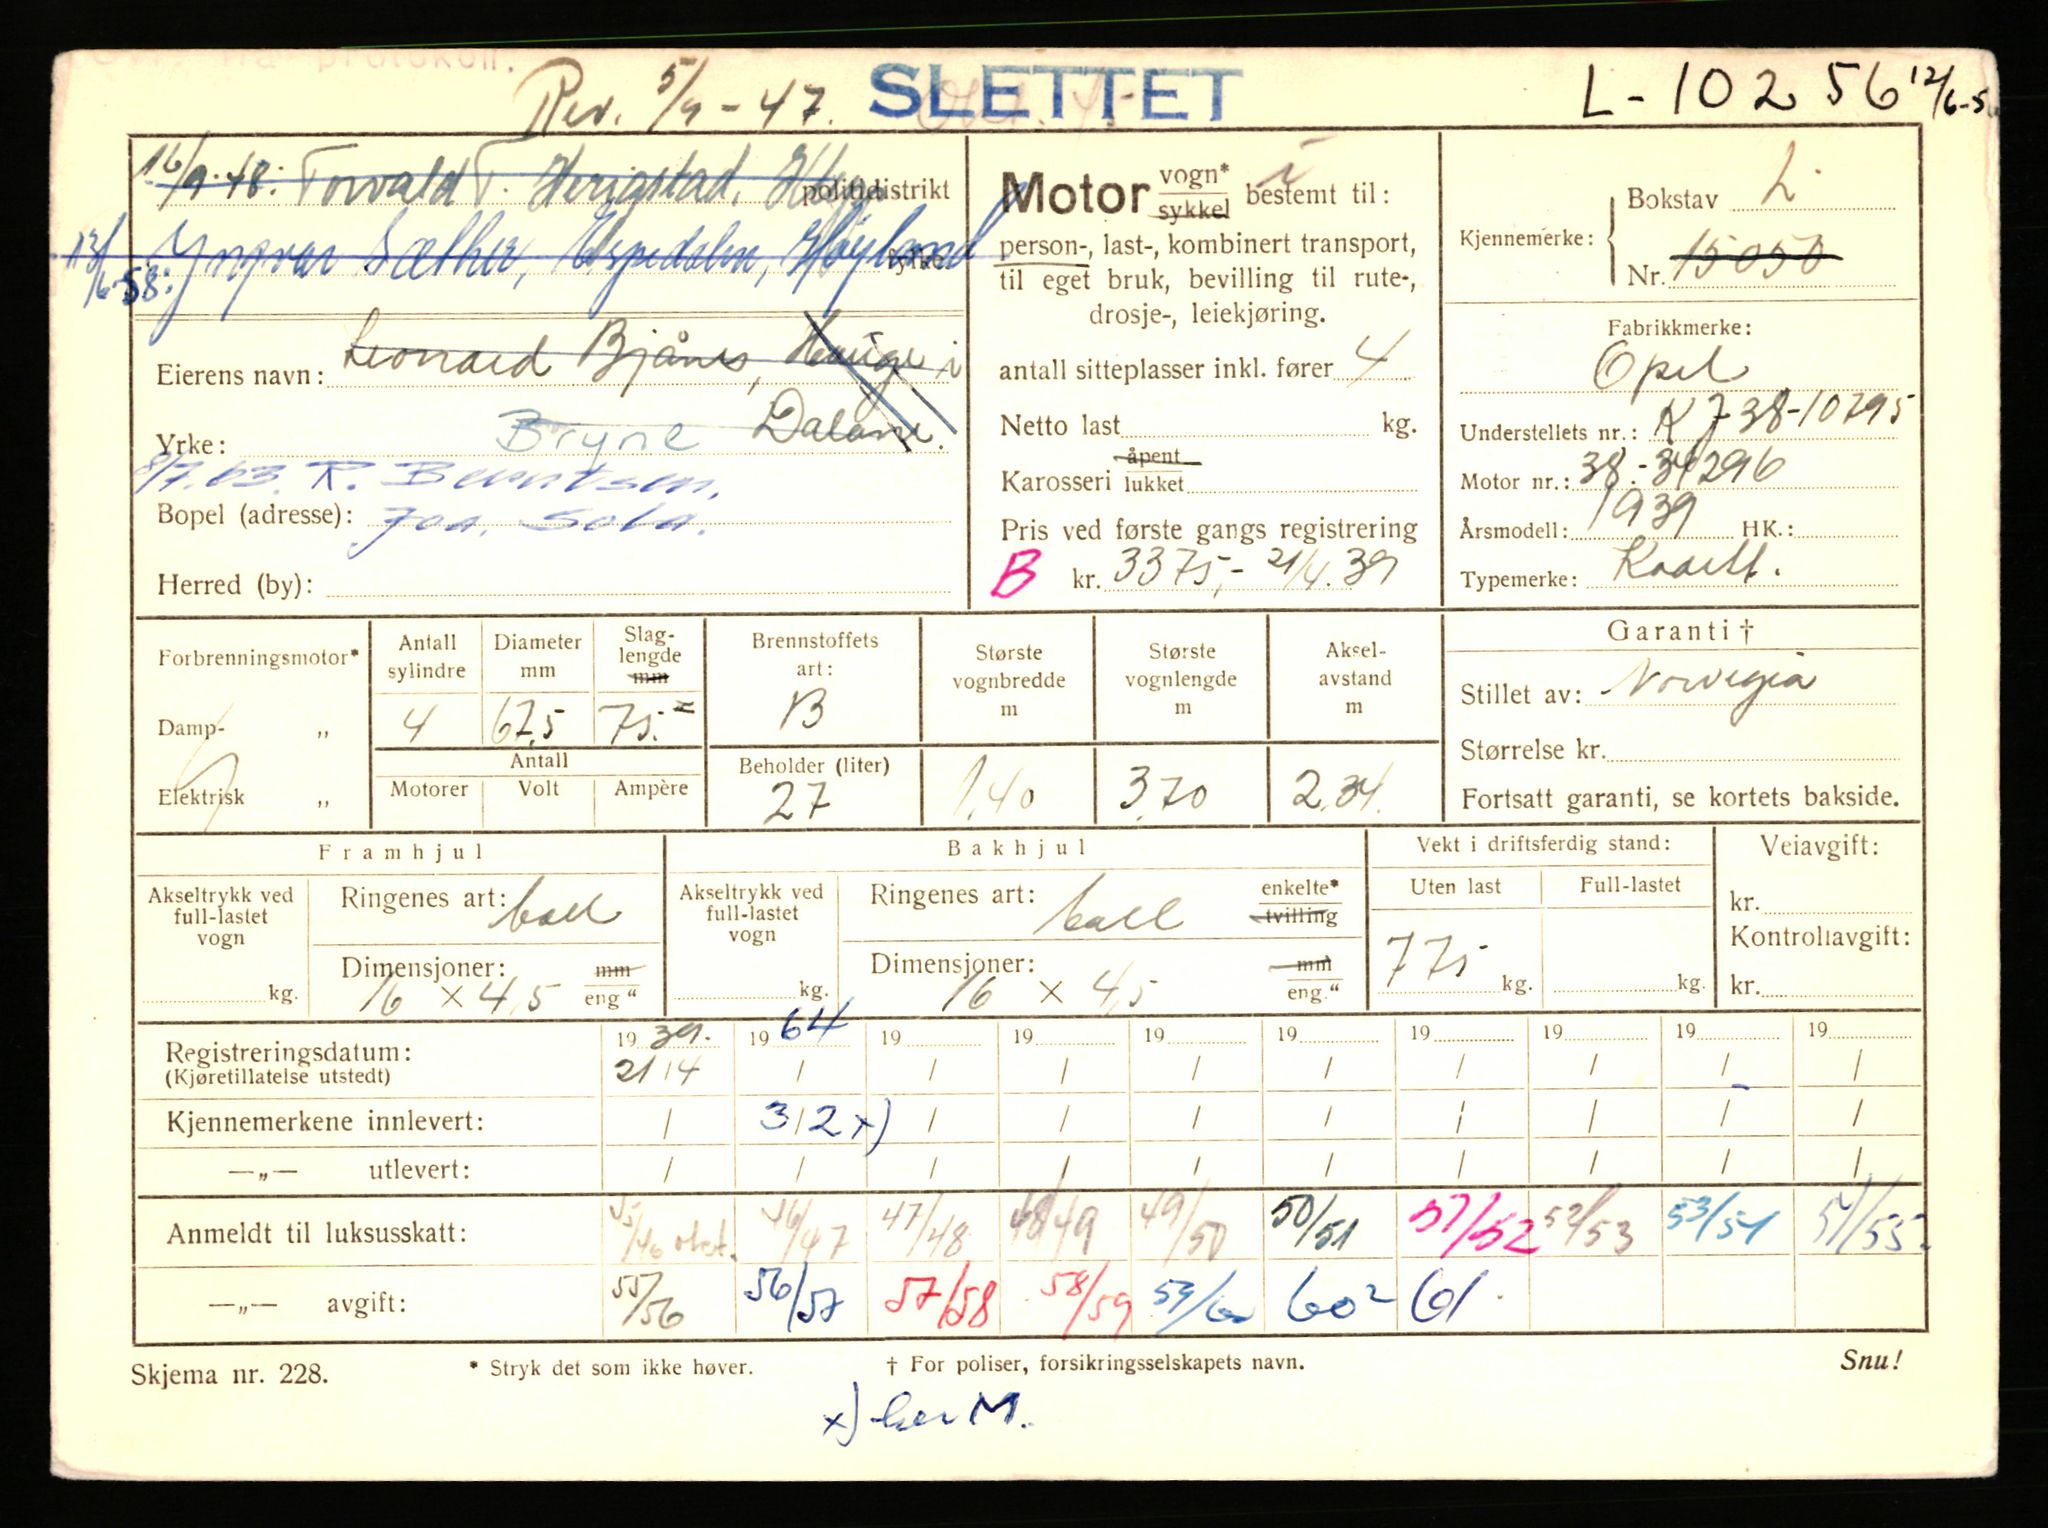 Ovf. fra protokoll.
Rev. 5/9 - 47. SLETTET L - 10256 12/6-5
16/9.48: Torvald T. Herigstad, politidistrikt
13/6-58: Yngvar Sæther, Espedalen, Høyland fylke
Eierens navn: Leonard Bjånes, Hauge i
Yrke: Bryne Dalane.
8/7.63. R. Berntsen.
Bopel (adresse): Joa, Sola.
Herred (by):
Motor vogn* sykkel bestemt til:
person-, last-, kombinert transport,
til eget bruk, bevilling til rute-,
drosje-, leiekjøring.
antall sitteplasser inkl. fører 4
Netto last kg.
Karosseri åpent lukket
Pris ved første gangs registrering
B kr. 3375,- 21/4.39
Kjennemerke: Bokstav L
Nr. 15050
Fabrikkmerke:
Opel
Understellets nr.: K J 38-10795
Motor nr.: 38-34296
Årsmodell: 1939 HK.:
Typemerke: Kadett.
Forbrenningsmotor*
Damp- „
Elektrisk „
Antall sylindre 4
Diameter mm 67,5
Slag-lengde mm 75.-
Antall
Motorer Volt Ampère
Brennstoffets art: B
Beholder (liter) 27
Største vognbredde m 1.40
Største vognlengde m 3.70
Aksel-avstand m 2.34.
Garanti †
Stillet av: Norvegia
Størrelse kr.
Fortsatt garanti, se kortets bakside.
Framhjul
Akseltrykk ved full-lastet vogn kg.
Ringenes art: ball
Dimensjoner: 16 × 4,5 mm eng “
Bakhjul
Akseltrykk ved full-lastet vogn kg.
Ringenes art: ball enkelte* tvilling
Dimensjoner: 16 × 4,5 mm eng.“
Vekt i driftsferdig stand:
Uten last 775 kg.
Full-lastet kg.
Veiavgift:
kr.
Kontrollavgift:
kr.
Registreringsdatum: 19 39. 19 64 19 19 19 19 19 19 19 19
(Kjøretillatelse utstedt) 21/4 / / / / / / / / /
Kjennemerkene innlevert: / 3/2 x) / / / / / / / /
—„— utlevert: / / / / / / / / / /
Anmeldt til luksusskatt: 45/46 46/47 47/48 48/49 49/50 50/51 51/52 52/53 53/54 54/55
—„— avgift: 55/56 56/57 57/58 58/59 59/60 60² 61
Skjema nr. 228. * Stryk det som ikke høver. † For poliser, forsikringsselskapets navn. Snu!
x) her M.